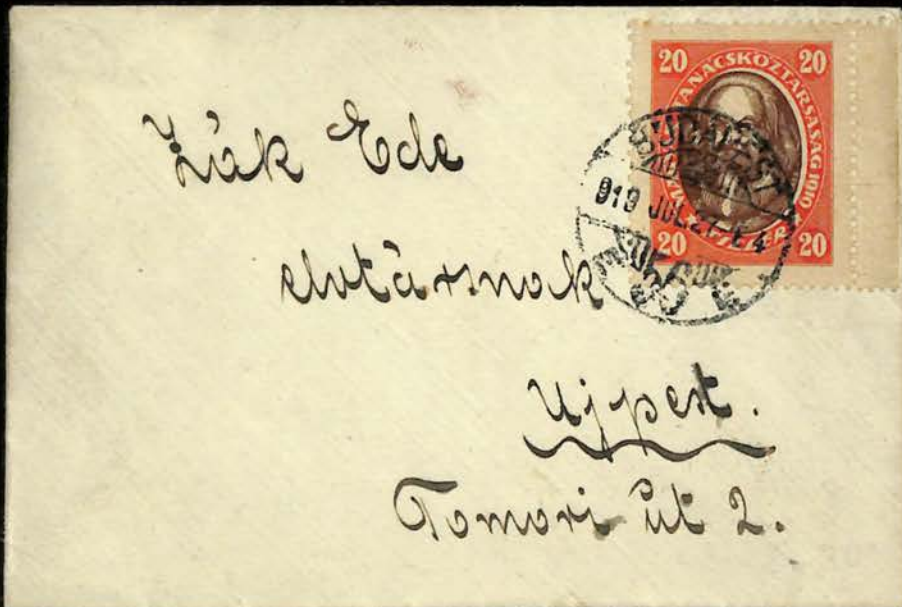 20 20
MAGYAR TANÁCSKÖZTÁRSASÁG 1919
20 FILLÉR 20
BUDAPEST
919 JUL. 27
Zák Ede
elvtársnak
Ujpest.
Tomori út 2.